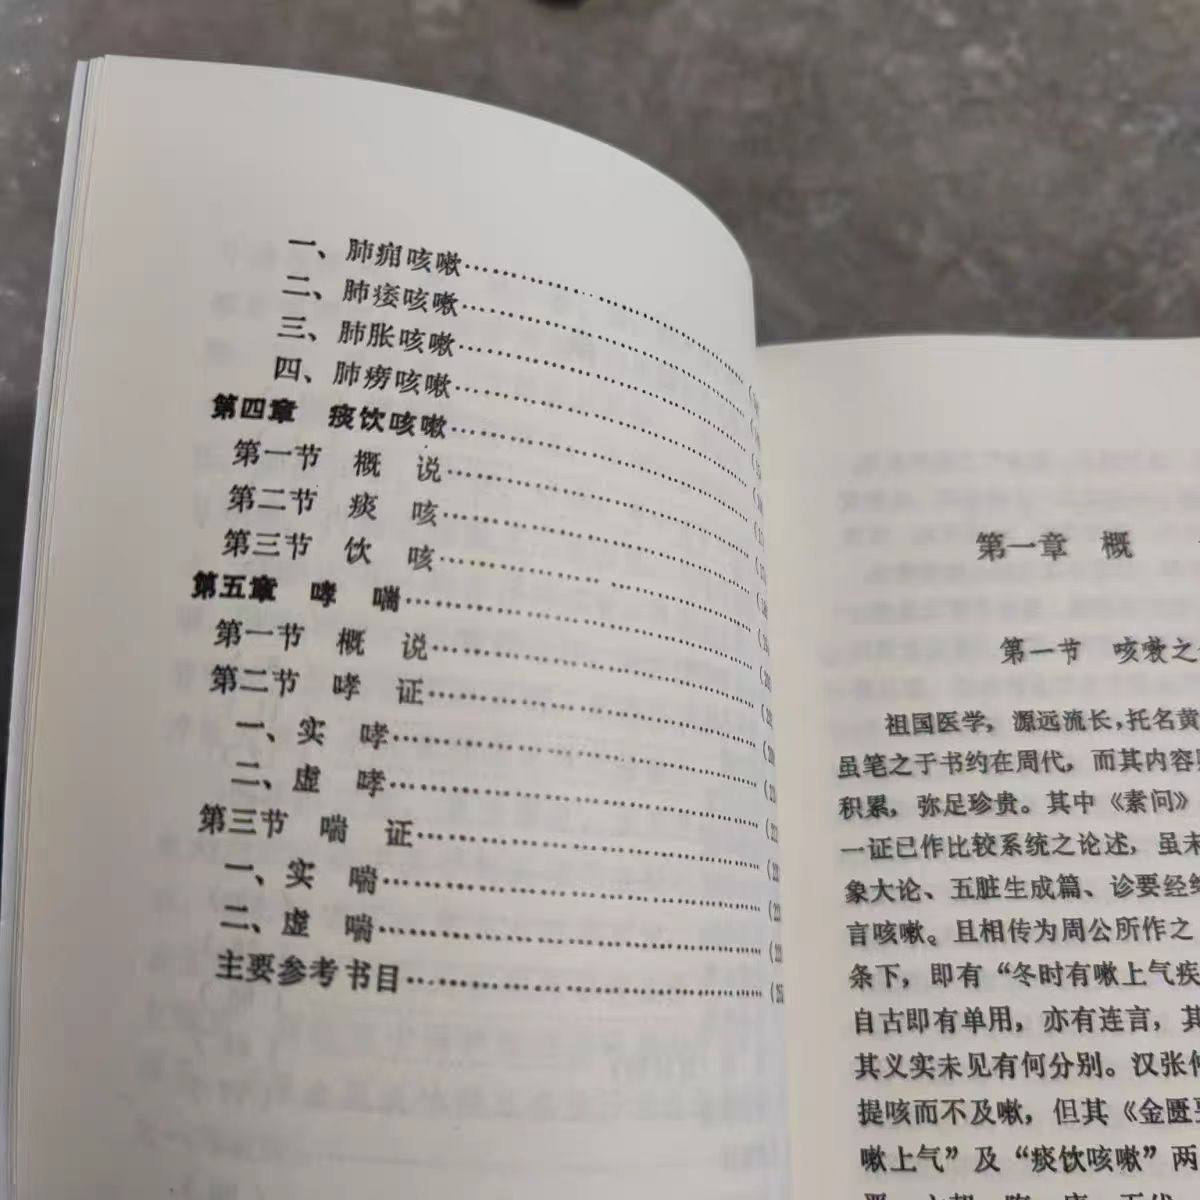 一、肺痈咳嗽……………………
二、肺痿咳嗽……………………
三、肺胀咳嗽……………………
四、肺痨咳嗽……………………
第四章　痰饮咳嗽……………………
第一节　概　说……………………
第二节　痰　咳……………………
第三节　饮　咳……………………
第五章　哮　喘……………………
第一节　概　说……………………
第二节　哮　证……………………
一、实　哮……………………
二、虚　哮……………………
第三节　喘　证……………………
一、实　喘……………………
二、虚　喘……………………
主要参考书目……………………
第一章　概
第一节　咳嗽之
祖国医学，源远流长，托名黄
虽笔之于书约在周代，而其内容
积累，弥足珍贵。其中《素问》
一证已作比较系统之论述，虽未
象大论、五脏生成篇、诊要经
言咳嗽。且相传为周公所作之
条下，即有“冬时有嗽上气疾
自古即有单用，亦有连言，其
其义实未见有何分别。汉张仲
提咳而不及嗽，但其《金匮
嗽上气”及“痰饮咳嗽”两